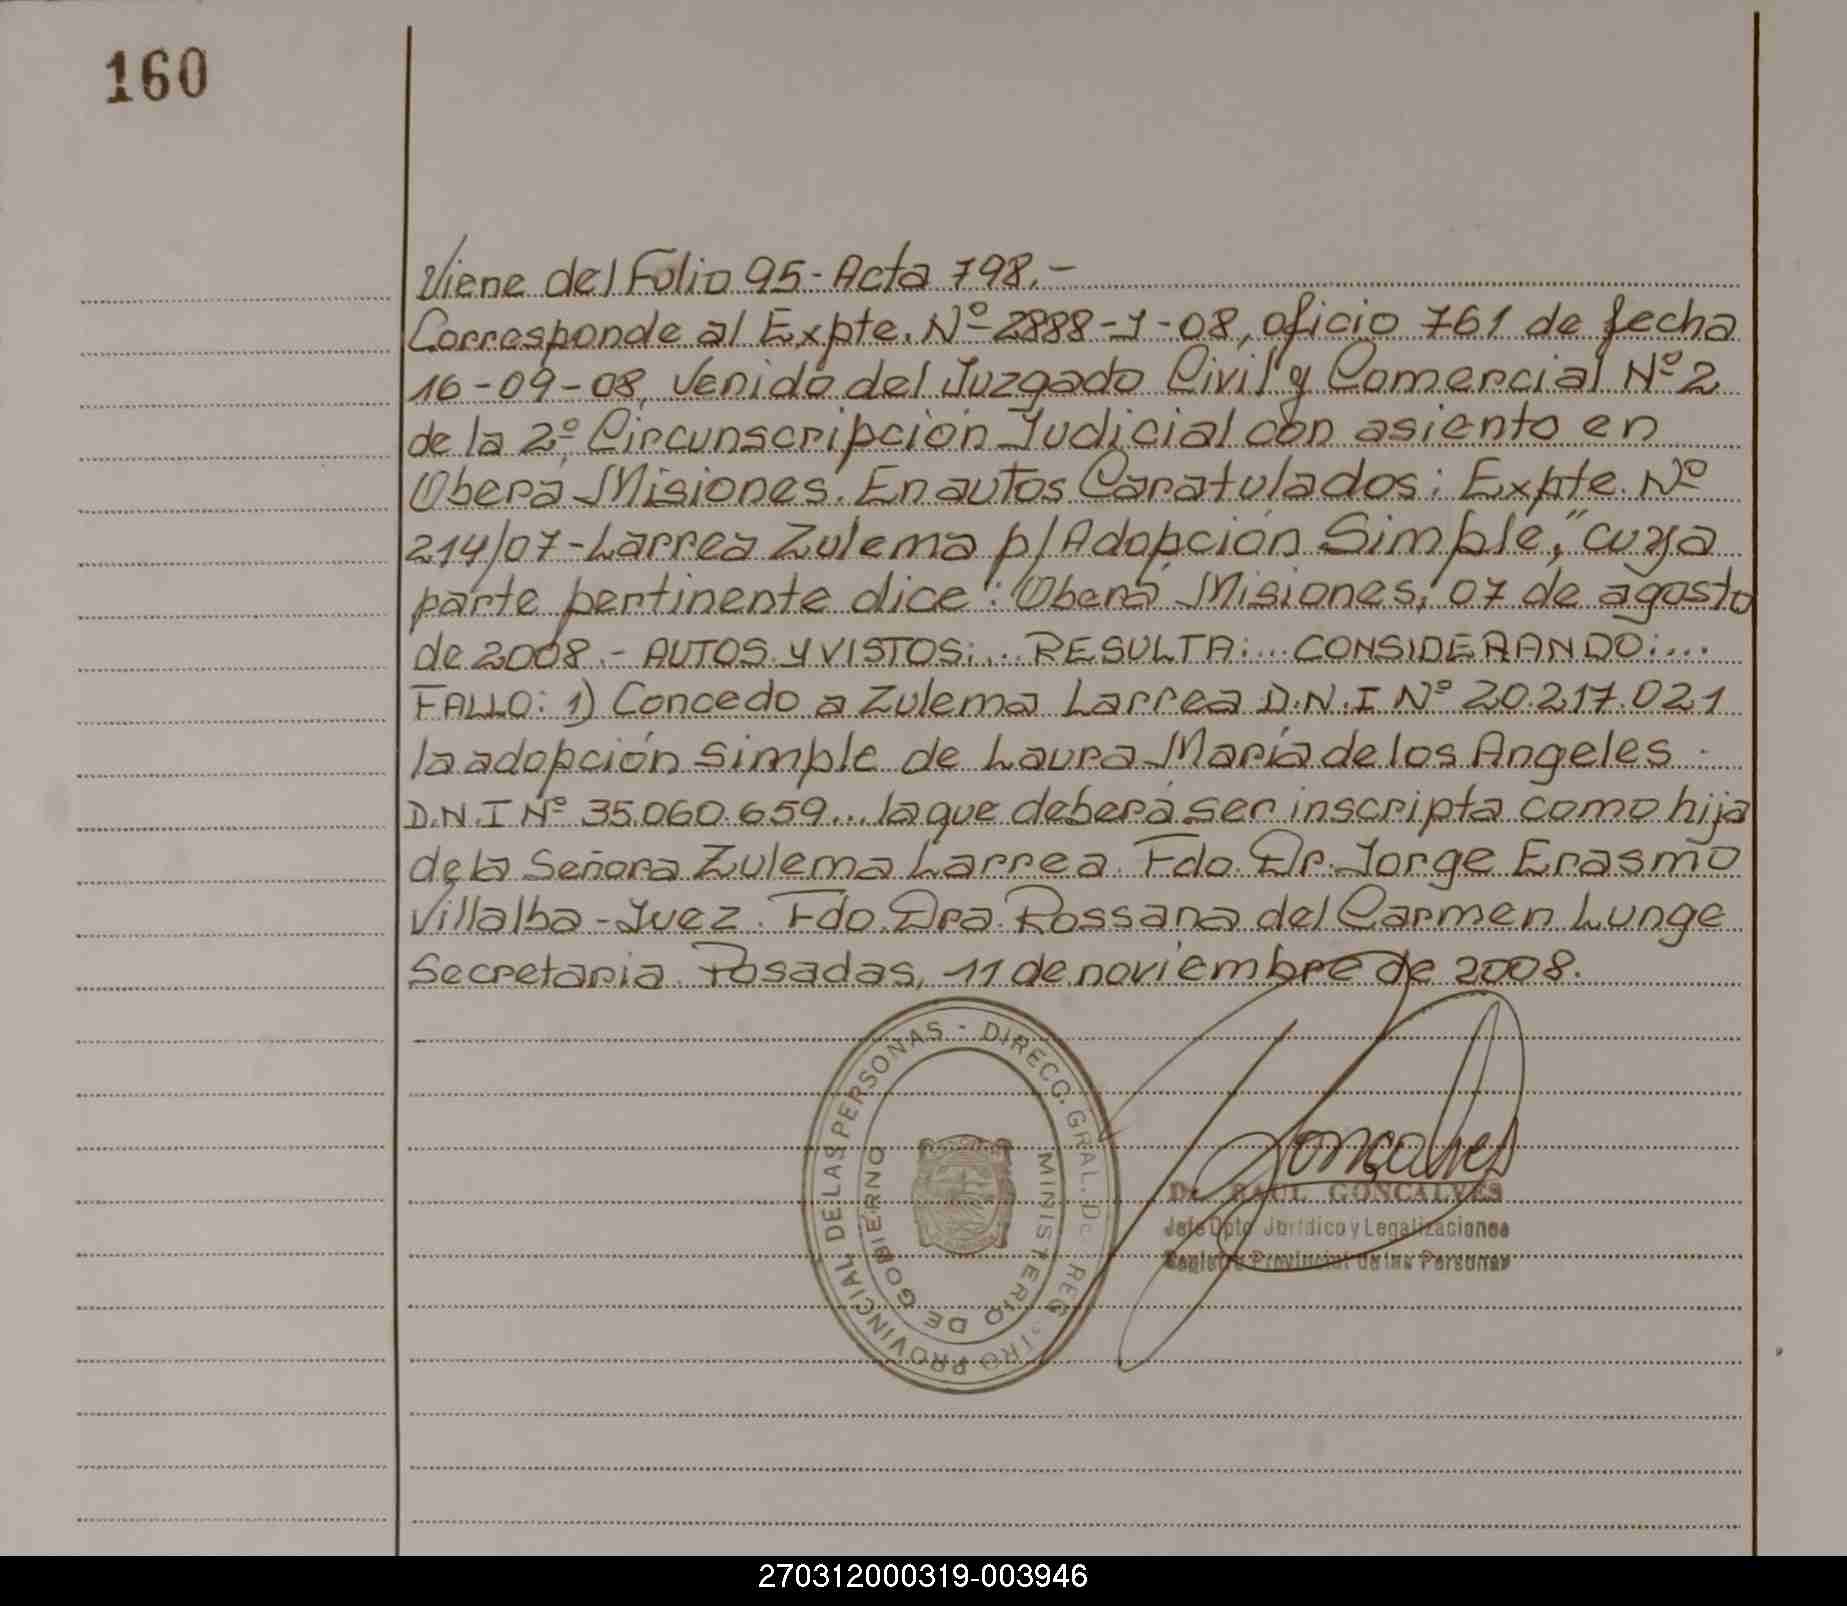 160
Viene del Folio 95 - Acta 798.-
Corresponde al Expte. Nº 2888-J-08, oficio 761 de fecha
16-09-08, venido del Juzgado Civil y Comercial Nº 2
de la 2º, Circunscripción Judicial con asiento en
Oberá Misiones. En autos Caratulados: Expte. Nº
214/07-Larrea Zulema p/Adopción Simple," cuya
parte pertinente dice": Oberá Misiones, 07 de agosto
de 2008.- AUTOS Y VISTOS:... RESULTA:... CONSIDERANDO:...
FALLO: 1) Concedo a Zulema Larrea D.N.I Nº 20.217.021
la adopción simple de Laura María de los Angeles -
D.N.I Nº 35.060.659... la que deberá ser inscripta como hija
de la Señora Zulema Larrea. Fdo. Dr. Jorge Erasmo
Villalba - Juez. Fdo. Dra. Rossana del Carmen Lunge
Secretaria. Posadas, 11 de noviembre de 2008.
DIRECC. GRAL. DE REGISTRO PROVINCIAL DE LAS PERSONAS -
MINISTERIO DE GOBIERNO
Goncalves
Dr. RAUL GONCALVES
Jefe Dpto Jurídico y Legalizaciones
Registro Provincial de las Personas
270312000319-003946